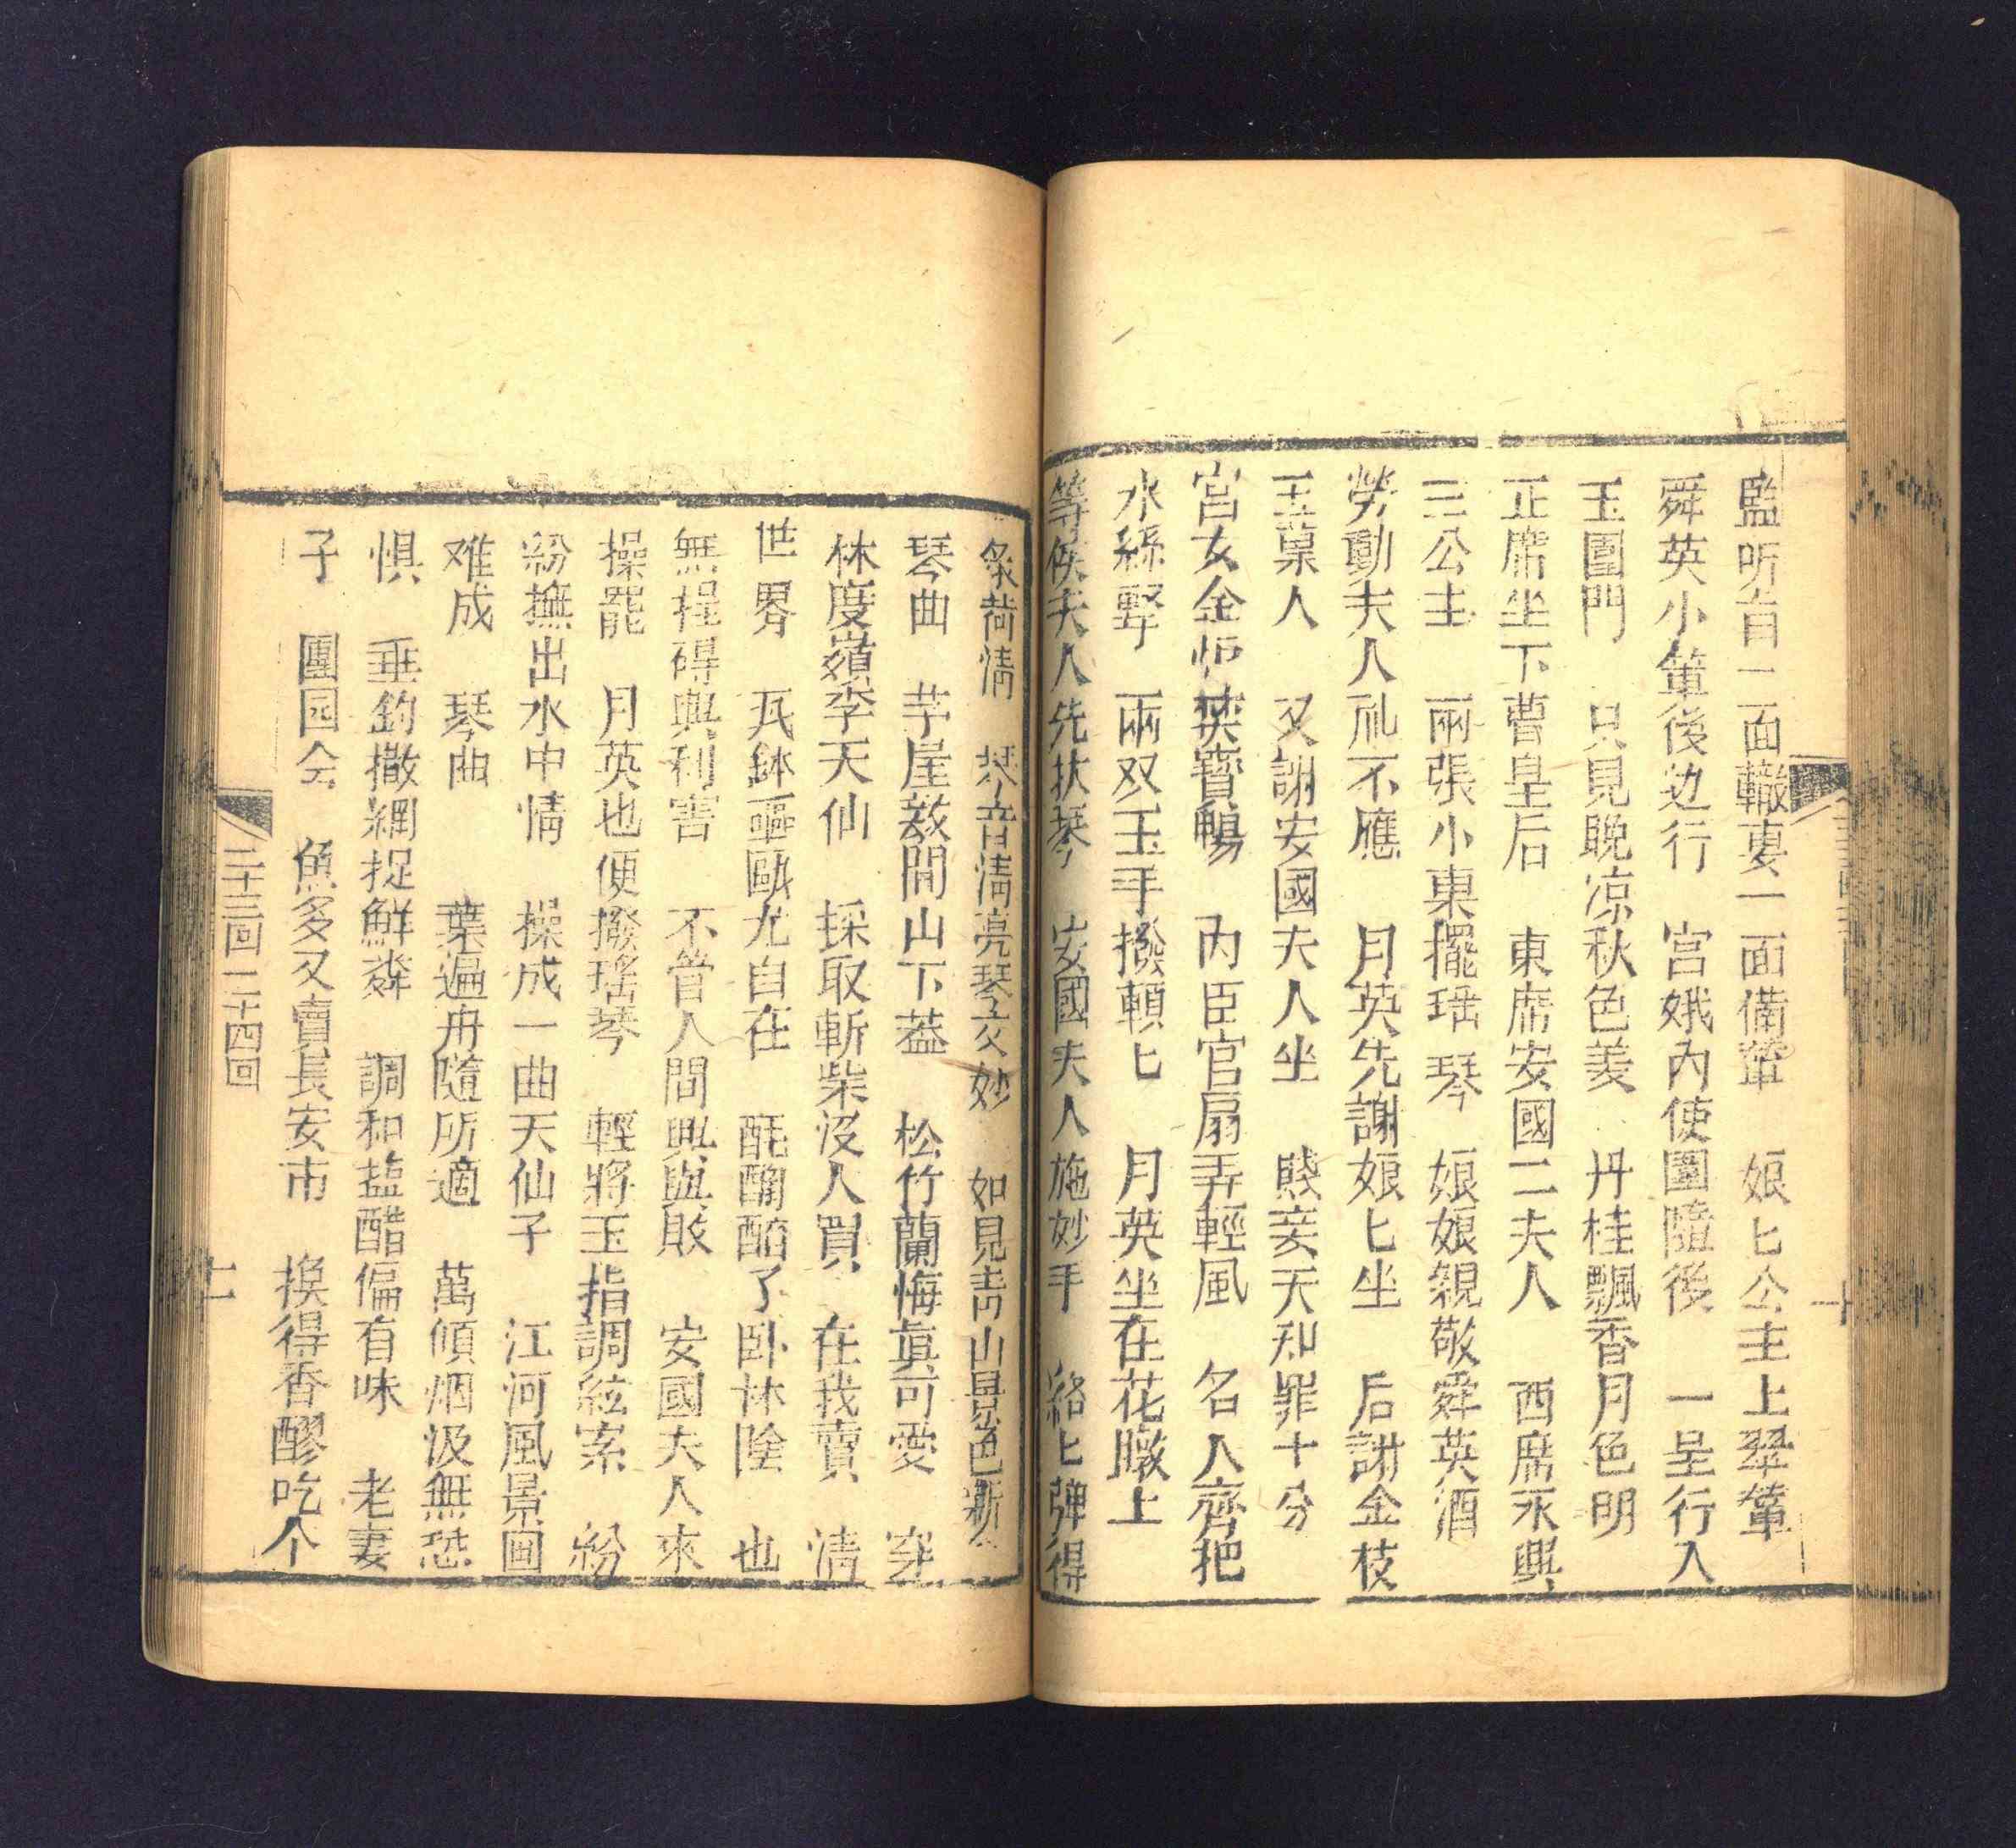 監听旨一面轍吏一面備輦　娘匕公主上翠輦
舜英小輦後边行　宮娥內使圍隨後　一呈行入
玉園門　只見晚凉秋色羙　丹桂飄香月色明
正席坐下曹皇后　東席安國二夫人　西席永興
三公主　兩張小東擺瑶琴　娘娘親敬舜英酒
勞動夫人礼不應　月英先謝娘匕坐　后謝金枝
玉菓人　又謝安國夫人坐　賤妾天知罪十分
宮女金炉焚寶鴨　內臣官扇弄輕風　名人齊把
水綠野　兩双玉手撥頼匕　月英坐在花暾上
等候夫人先扶琴　安國夫人施妙手　絡匕弹得
衆荷淸　琴音淸亮琴玄妙　如見靑山景色新
琴曲　茅屋数間山下葢　松竹蘭梅眞可愛　穿
林度嶺李天仙　採取斬柴没人買　在我賣　淸
世界　瓦鉢甌甌尤自在　酕醄醄了卧林陰　也
無捏碍與利害　不管人間興與敗　安國夫人來
操罷　月英也便撥瑶琴　輕將玉指調絃索　紛
紛撫出水中情　操成一曲天仙子　江河風景画
难成　琴曲　葉遍舟隨所適　萬傾烟汲無恐
惧　垂鈞撒網捉鮮粦　調和盐醋偏有味　老妻
子　團园会　魚多又賣長安市　換得香醪吃个
二十三回二十四回
十一
十